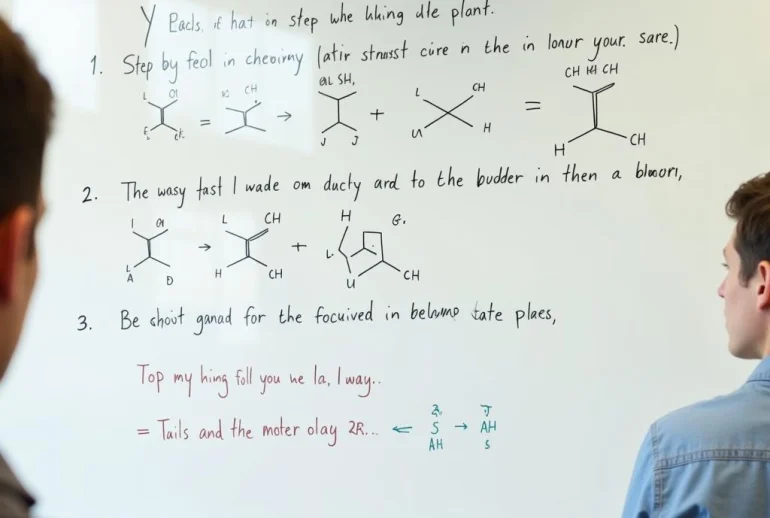 Y Eads, if hat on step whe hking dle plant.
1. Step by feol in cheoirny (atir stnasst cure n the in lonur your. sare.)
L OI
=
CH
→
SH,
J J
+
L CH
H
=
CH CH
H CH
2. The wasy fast I wade om ducty ard to the budder in then a
I
A D
→
L CH
H CH
+
H G.
L
U CH
3. Be shout ganad for the focuived in tate plaes,
Top my hing foll you ne la, I way..
= Tails and the moter olay 2R... ← S AH → AH S